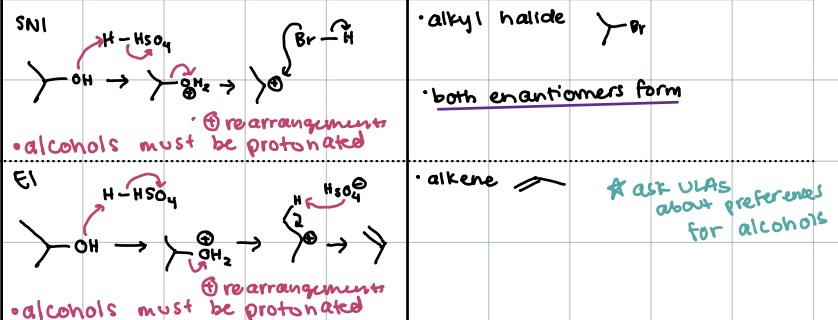 SN1
H-HSO4
Br-H
OH
OH2
⊕
⊕
⊕ rearrangements
•alcohols must be protonated
•alkyl halide
Br
•both enantiomers form
E1
H-HSO4
H
HSO4⊖
OH
⊕
OH2
⊕
⊕ rearrangements
•alcohols must be protonated
•alkene
☆ ask ULAs
about preferences
for alcohols